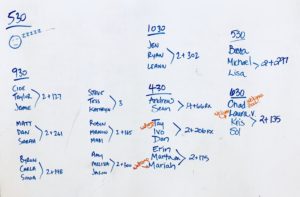 530
zzzzz
930
CLOE
TAYLOR
JAMIE
2+127
MATT
DAN
SARAH
2+261
BYRON
CARLA
SONIA
STEVE
TESS
KATHRYN
3
ROBIN
MANNIN
MARI
AMY
MELISSA
JASON
1030
JEN
RYAN
LEANN
2+302
430
Andrew
Sean
Tay
Ivo
Dan
Erin
Martan
Mariah
2+175
530
Beata
Michael
Lisa
2+297
630
Chad
Laura.V.
Kris
Sol
2+135